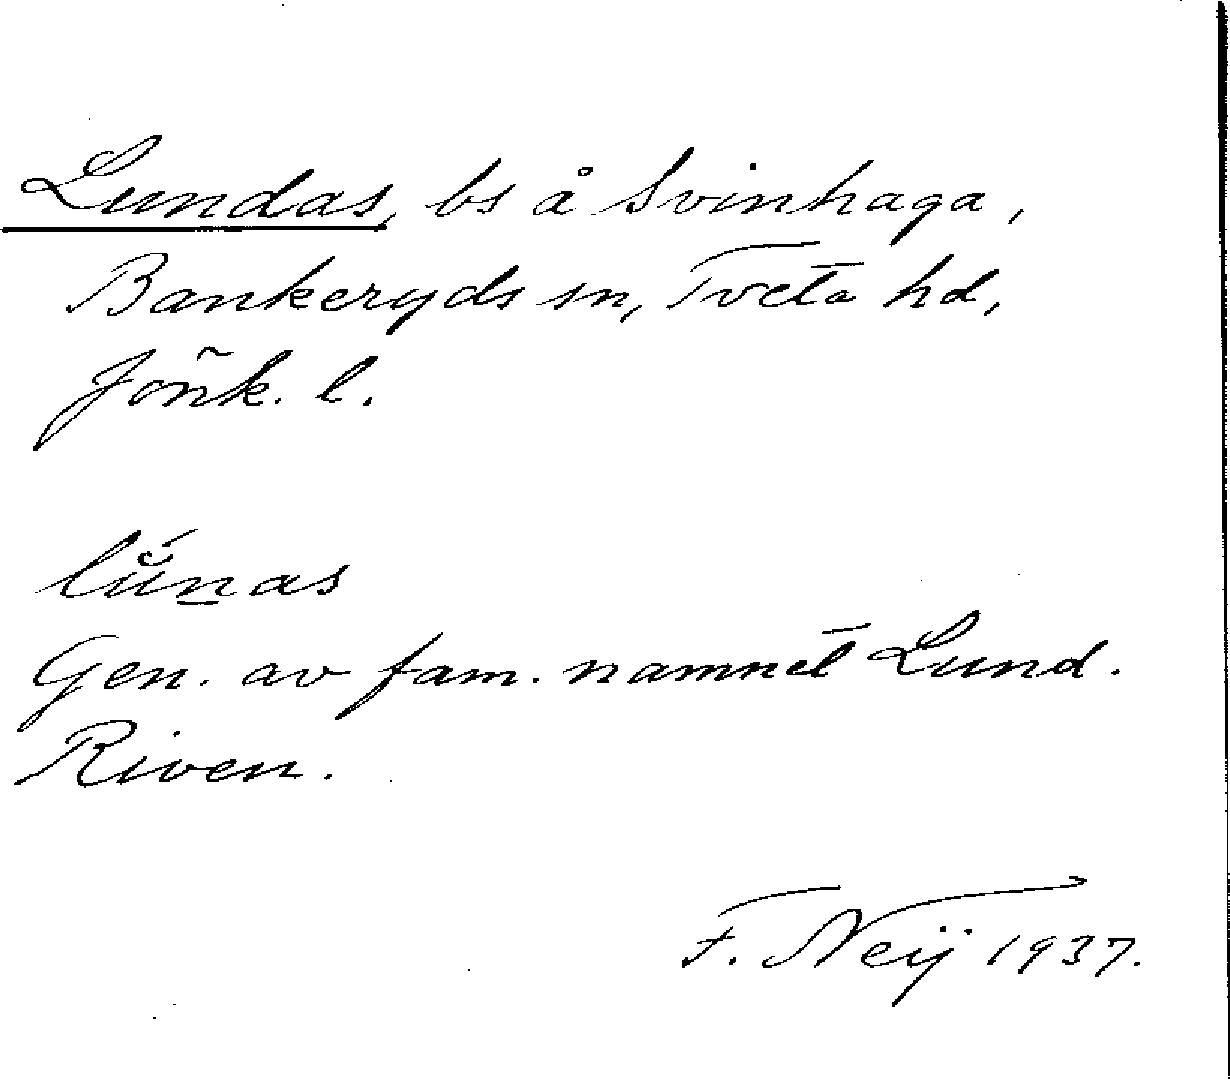 Lundas, bs å Svinhaga,
Bankeryds sn, Tveta hd,
Jönk. l.
lŭ́n̲as
Gen. av fam. namnet Lund.
Riven.
F. Neij 1937.